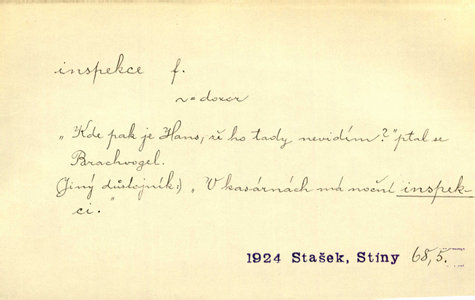 inspekce f.
~ = dozor
„Kde pak je Hans, že ho tady nevidím?" ptal se
Brachvogel.
(Jiný důstojník:) „V kasárnách má noční inspek-
ci."
1924 Stašek, Stíny 68,5.